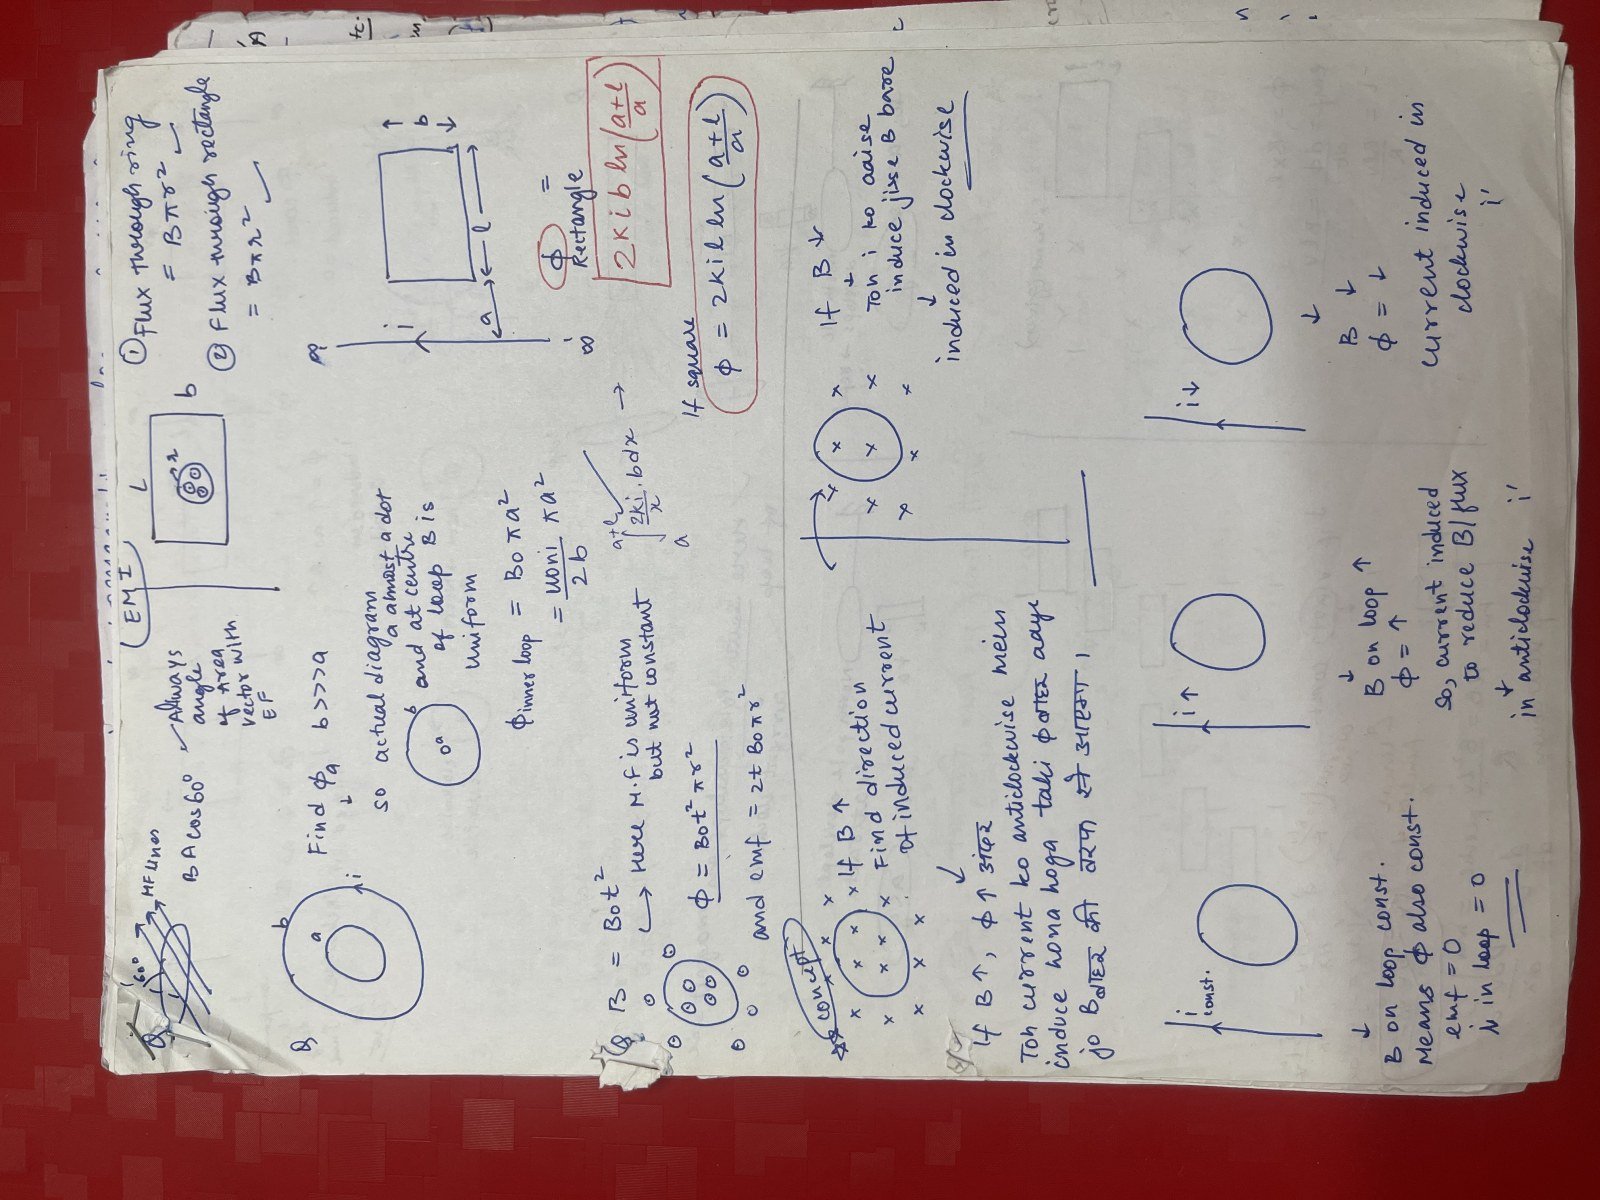 EMI
Q 60°
MF lines
BA cos60°
Always
angle
of Area
vector with
EF
L
b
r
① Flux through ring
= Bπr²
② Flux through rectangle
= Bπr²
Q
b
a
i
Find ϕa b>>>a
so actual diagram
a almost a dot
and at centre
of loop B is
uniform
b
a
ϕinner loop = B0 πa²
= μ0ni πa²
2b
∞
i
a
l
b
∞
ϕ =
Rectangle
2kib ln(a+l/a)
Q B = B0t²
↳ Here M.F is uniform
but not constant
ϕ = B0t² πr²
and emf = 2t B0πr²
a+l
∫ 2ki/x . bdx →
a
If square
ϕ = 2kil ln(a+l/a)
concept
If B↑
Find direction
of induced current
If B↑, ϕ↑ अंदर
Toh current ko anticlockwise mein
induce hona hoga taki ϕ बाहर aaye
jo B बाहर की तरफ से आएगा।
If B↓
↓
Toh i ko aaise
induce jisse B bare
↓
induced in clockwise
i const.
↓
B on loop const.
Means ϕ also const.
emf = 0
i in loop = 0
i↑
↓
B on loop ↑
ϕ = ↑
So, current induced
to reduce B/flux
↓
in anticlockwise i'
i↓
↓
B ↓
ϕ = ↓
current induced in
clockwise
i'